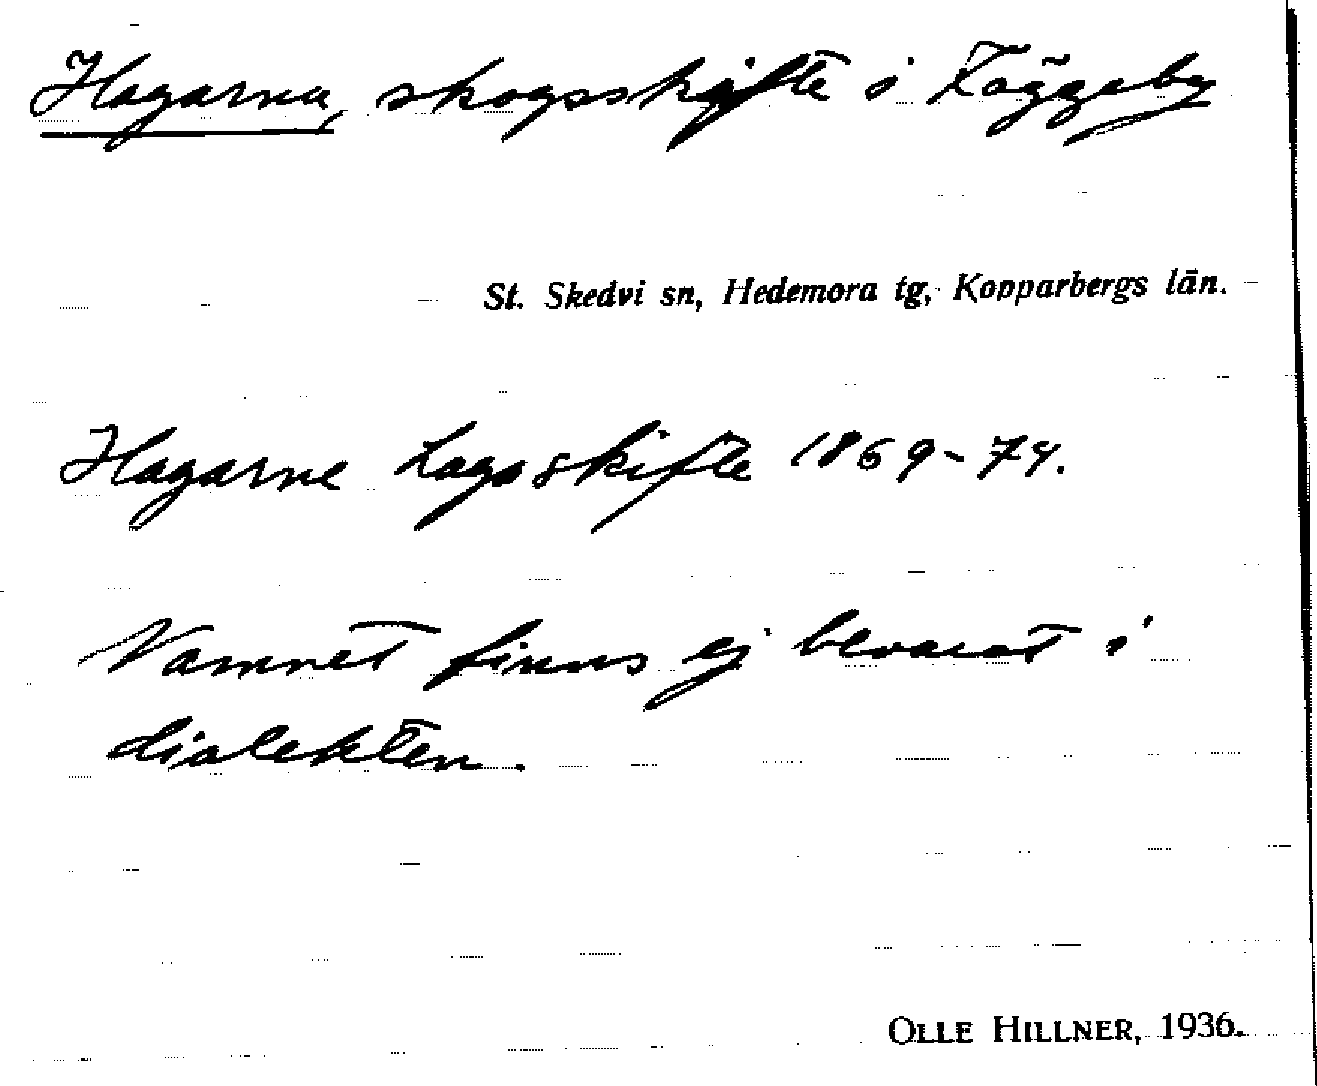 Hagarna, skogsskifte i Täggeby
St. Skedvi sn, Hedemora tg, Kopparbergs län.
Hagarne Lagaskifte 1869-74.
Namnet finns ej bevarat i
dialekten.
OLLE HILLNER, 1936.